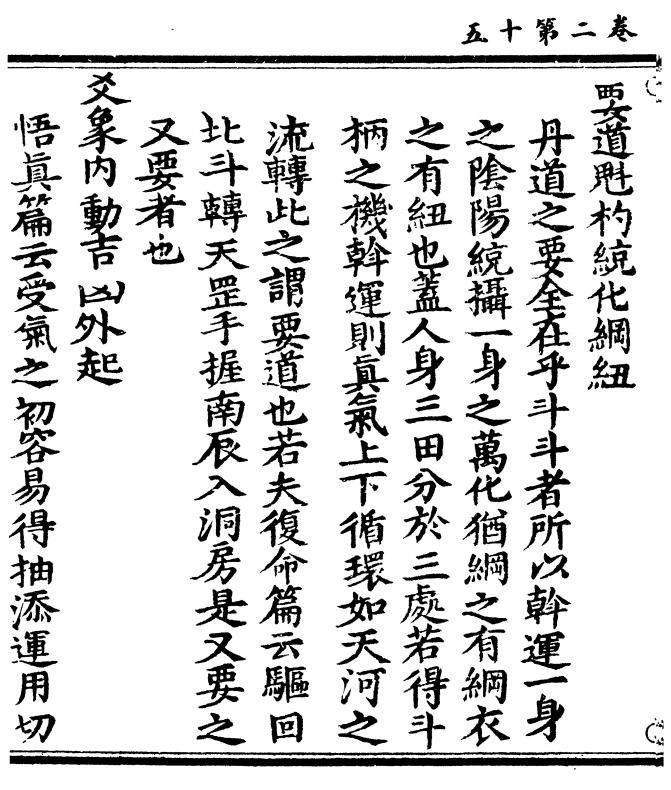 五十第二卷
要道魁杓統化綱紐
丹道之要全在乎斗斗者所以斡運一身
之陰陽統攝一身之萬化猶綱之有綱衣
之有紐也蓋人身三田分於三處若得斗
柄之機斡運則眞氣上下循環如天河之
流轉此之謂要道也若夫復命篇云驅回
北斗轉天罡手握南辰入洞房是又要之
又要者也
爻象内動吉凶外起
悟眞篇云受氣之初容易得抽添運用切